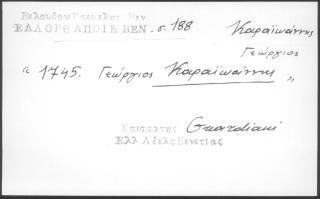 Βελουδου Επεελετ Βεν
ΕΛΛΟΡΘΑΠΟΙΚΒΕΝ. σ. 188 Καραϊωάννης
Γεώργιος
1745. Γεώργιος Καραϊωάννης "
Επιστατης Guardiani
Ελλ Αδελφ Βενετιας